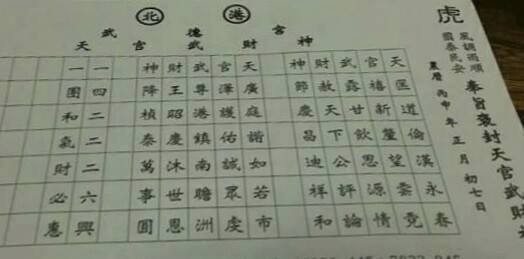 北港
武德宮
天官武財神
虎
風調雨順
國泰民安
奉旨褒封天官武財
農曆丙申年正月初七日
天匡道倫漢永春
官禧新釐望雲竟
武露甘飲思源情
財赦天下公評論
神節慶昌迪祥和
天廣庭諧如若市
官澤護佑誠眾虔
武尊港鎮南瞻洲
財王昭慶沐世恩
神降楨泰萬事圓
一四二二二六興
一團和氣財必應